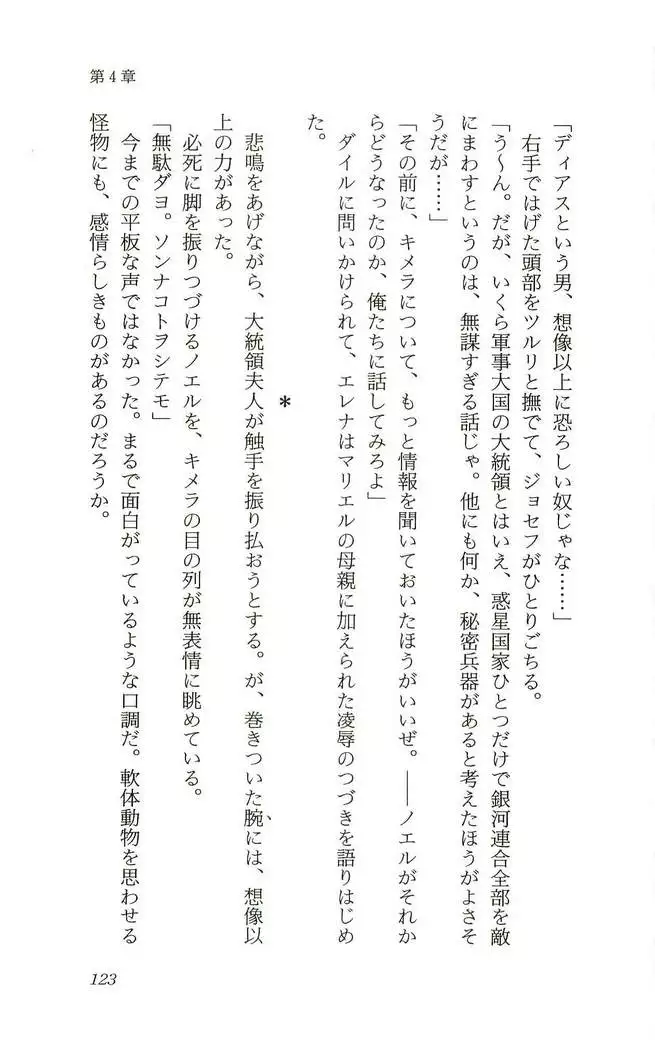 第4章
「ディアスという男、想像以上に恐ろしい奴じゃな……」
右手ではげた頭部をツルリと撫でて、ジョセフがひとりごちる。
「う～ん。だが、いくら軍事大国の大統領とはいえ、惑星国家ひとつだけで銀河連合全部を敵
にまわすというのは、無謀すぎる話じゃ。他にも何か、秘密兵器があると考えたほうがよさそ
うだが……」
「その前に、キメラについて、もっと情報を聞いておいたほうがいいぜ。――ノエルがそれか
らどうなったのか、俺たちに話してみろよ」
ダイルに問いかけられて、エレナはマリエルの母親に加えられた凌辱のつづきを語りはじめ
た。
＊
悲鳴をあげながら、大統領夫人が触手を振り払おうとする。が、巻きついた腕には、想像以
上の力があった。
必死に脚を振りつづけるノエルを、キメラの目の列が無表情に眺めている。
「無駄ダヨ。ソンナコトヲシテモ」
今までの平板な声ではなかった。まるで面白がっているような口調だ。軟体動物を思わせる
怪物にも、感情らしきものがあるのだろうか。
123